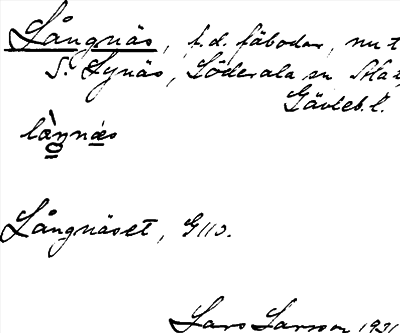 Långnäs, f.d. fäbodar, nu t
S. Lynäs, Söderala sn
Gävleb. l.
Långnäset, G110.
Lars Larsson 1931